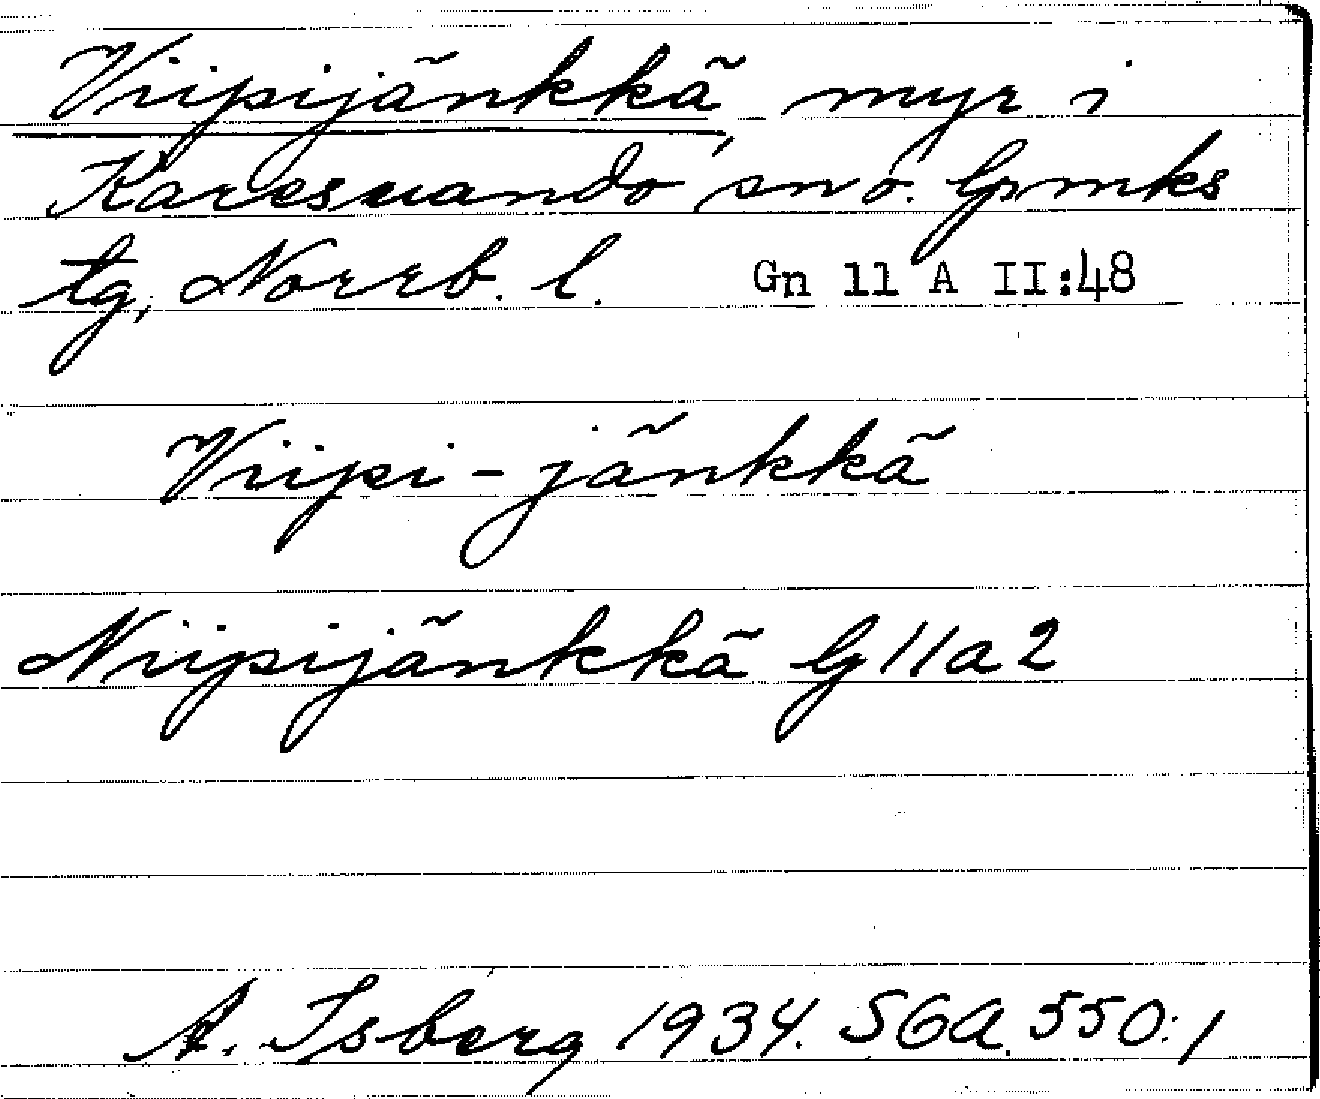 Viipijänkkä, myr i
Karesuando sn o. lpmks
tg, Norrb. l. Gn 11 A II:48
Viipi-jänkkä
Niipijänkkä G 11a2
A. Isberg 1934. SGA. 550:1